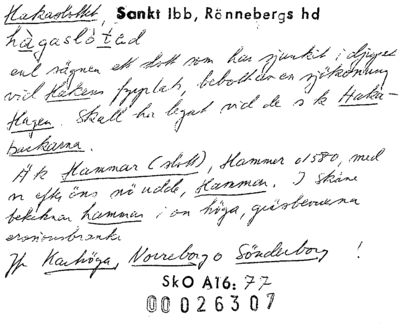 Hakaslottet, Sankt Ibb, Rönnebergs hd
hàgaslòtəd
enl sägnen ett slott som har sjunkit i djupet
vid Hakens fyrplats, bebott av en sjökonung
Skall ha legat vid de s k Haka-
backarna.
Äk Hammar (slott), Hammer o1580, med
n efter öns nö udde, Hammar. I Skåne
betecknar hammar i on höga, gräsbevuxna
erosionsbranter
Jfr Karhöga, Norreborg o Sönderborg !
SkO A16: 77
00026307